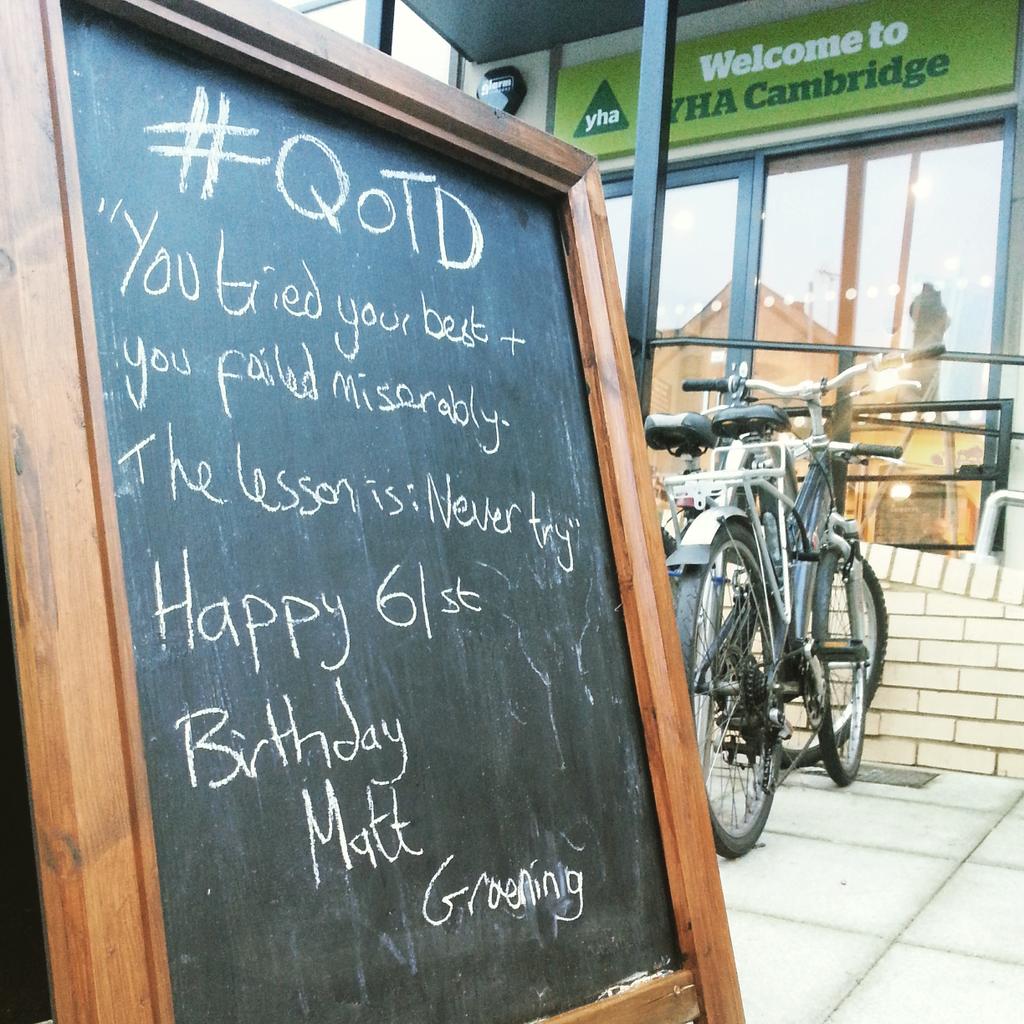 #QOTD
"You tried your best +
you failed miserably.
The lesson is: Never try"
Happy 61st
Birthday
Matt
Groening
Welcome to
YHA Cambridge
yha
alarm